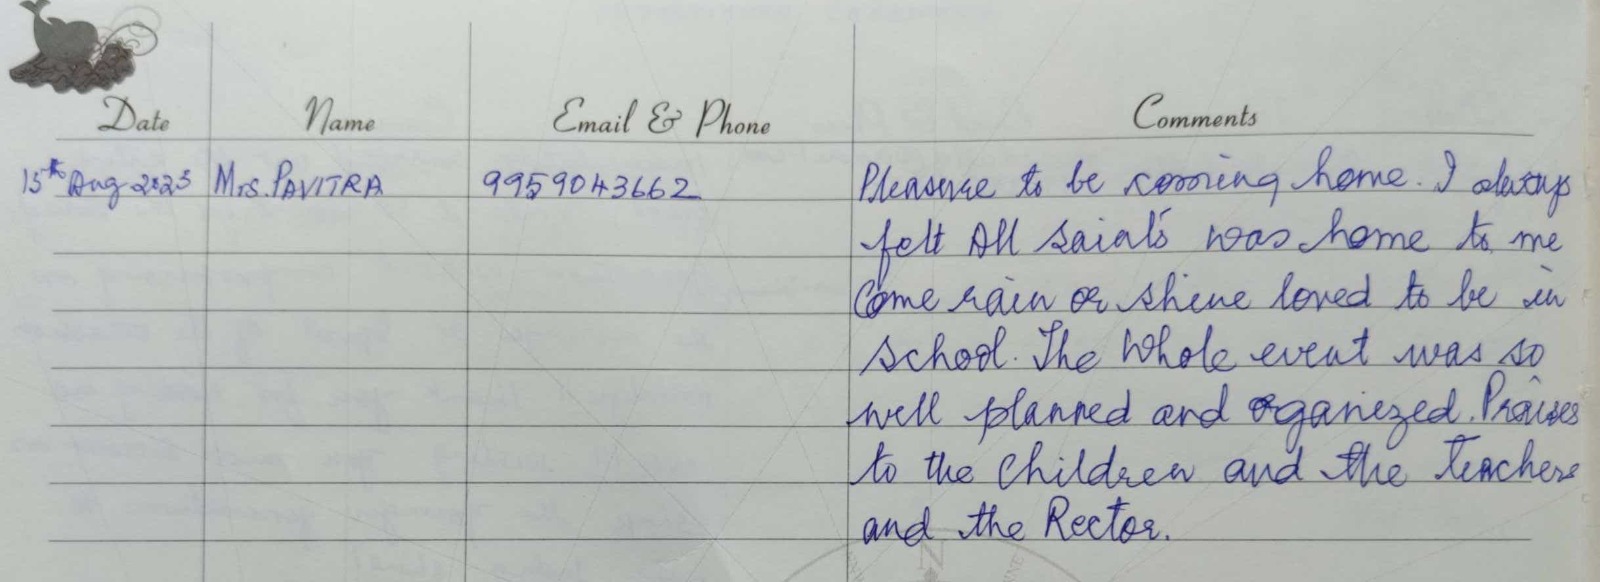 Date Name Email & Phone Comments
15th Aug 2023 Mrs. PAVITRA 9959043662 Pleasure to be coming home. I always
felt All Saint's was home to me
Come rain or shine loved to be in
school. The whole event was so
well planned and organized. Praises
to the children and the Teachers
and the Rector.